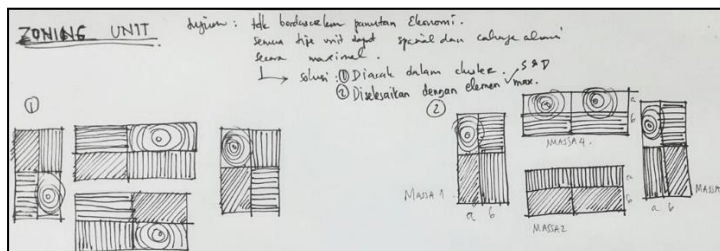 ZONING UNIT
tujuan : tdk berdasarkan panutan Ekonomi.
semua tipe unit dapat spasial dan cahaya alami
secara maximal.
solusi : ① Diacak dalam cluster. S & D
② Diselesaikan dengan elemen max.
①
②
a
b
MASSA 4.
MASSA 1
a b
a
b
MASSA 2
a b
MASSA